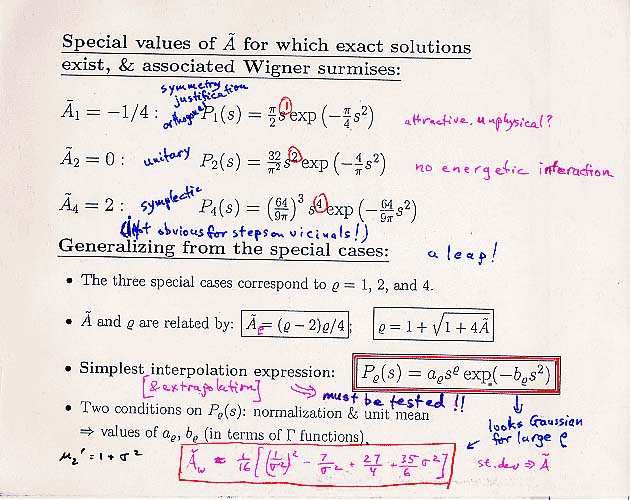 Special values of Ã for which exact solutions
exist, & associated Wigner surmises:
symmetry
justification
Ã₁ = −1/4 : orthogonal P₁(s) = π/2 s¹ exp(−π/4 s²) attractive, unphysical?
Ã₂ = 0 : unitary P₂(s) = 32/π² s² exp(−4/π s²) no energetic interaction
Ã₄ = 2 : symplectic P₄(s) = (64/9π)³ s⁴ exp(−64/9π s²)
(not obvious for steps on vicinals!)
Generalizing from the special cases: a leap!
• The three special cases correspond to ϱ = 1, 2, and 4.
• Ã and ϱ are related by: Ãϱ = (ϱ − 2)ϱ/4 ; ϱ = 1 + √(1 + 4Ã)
• Simplest interpolation expression: Pϱ(s) = aϱ s^ϱ exp(−bϱ s²)
[& extrapolation] ⇒ must be tested !!
• Two conditions on Pϱ(s): normalization & unit mean
⇒ values of aϱ, bϱ (in terms of Γ functions).
looks Gaussian
for large ϱ
μ₂' = 1 + σ² Ã_w ≈ 1/16 [(1/σ²)² − 7/σ² + 27/4 + 35/6 σ²] st. dev ⇒ Ã